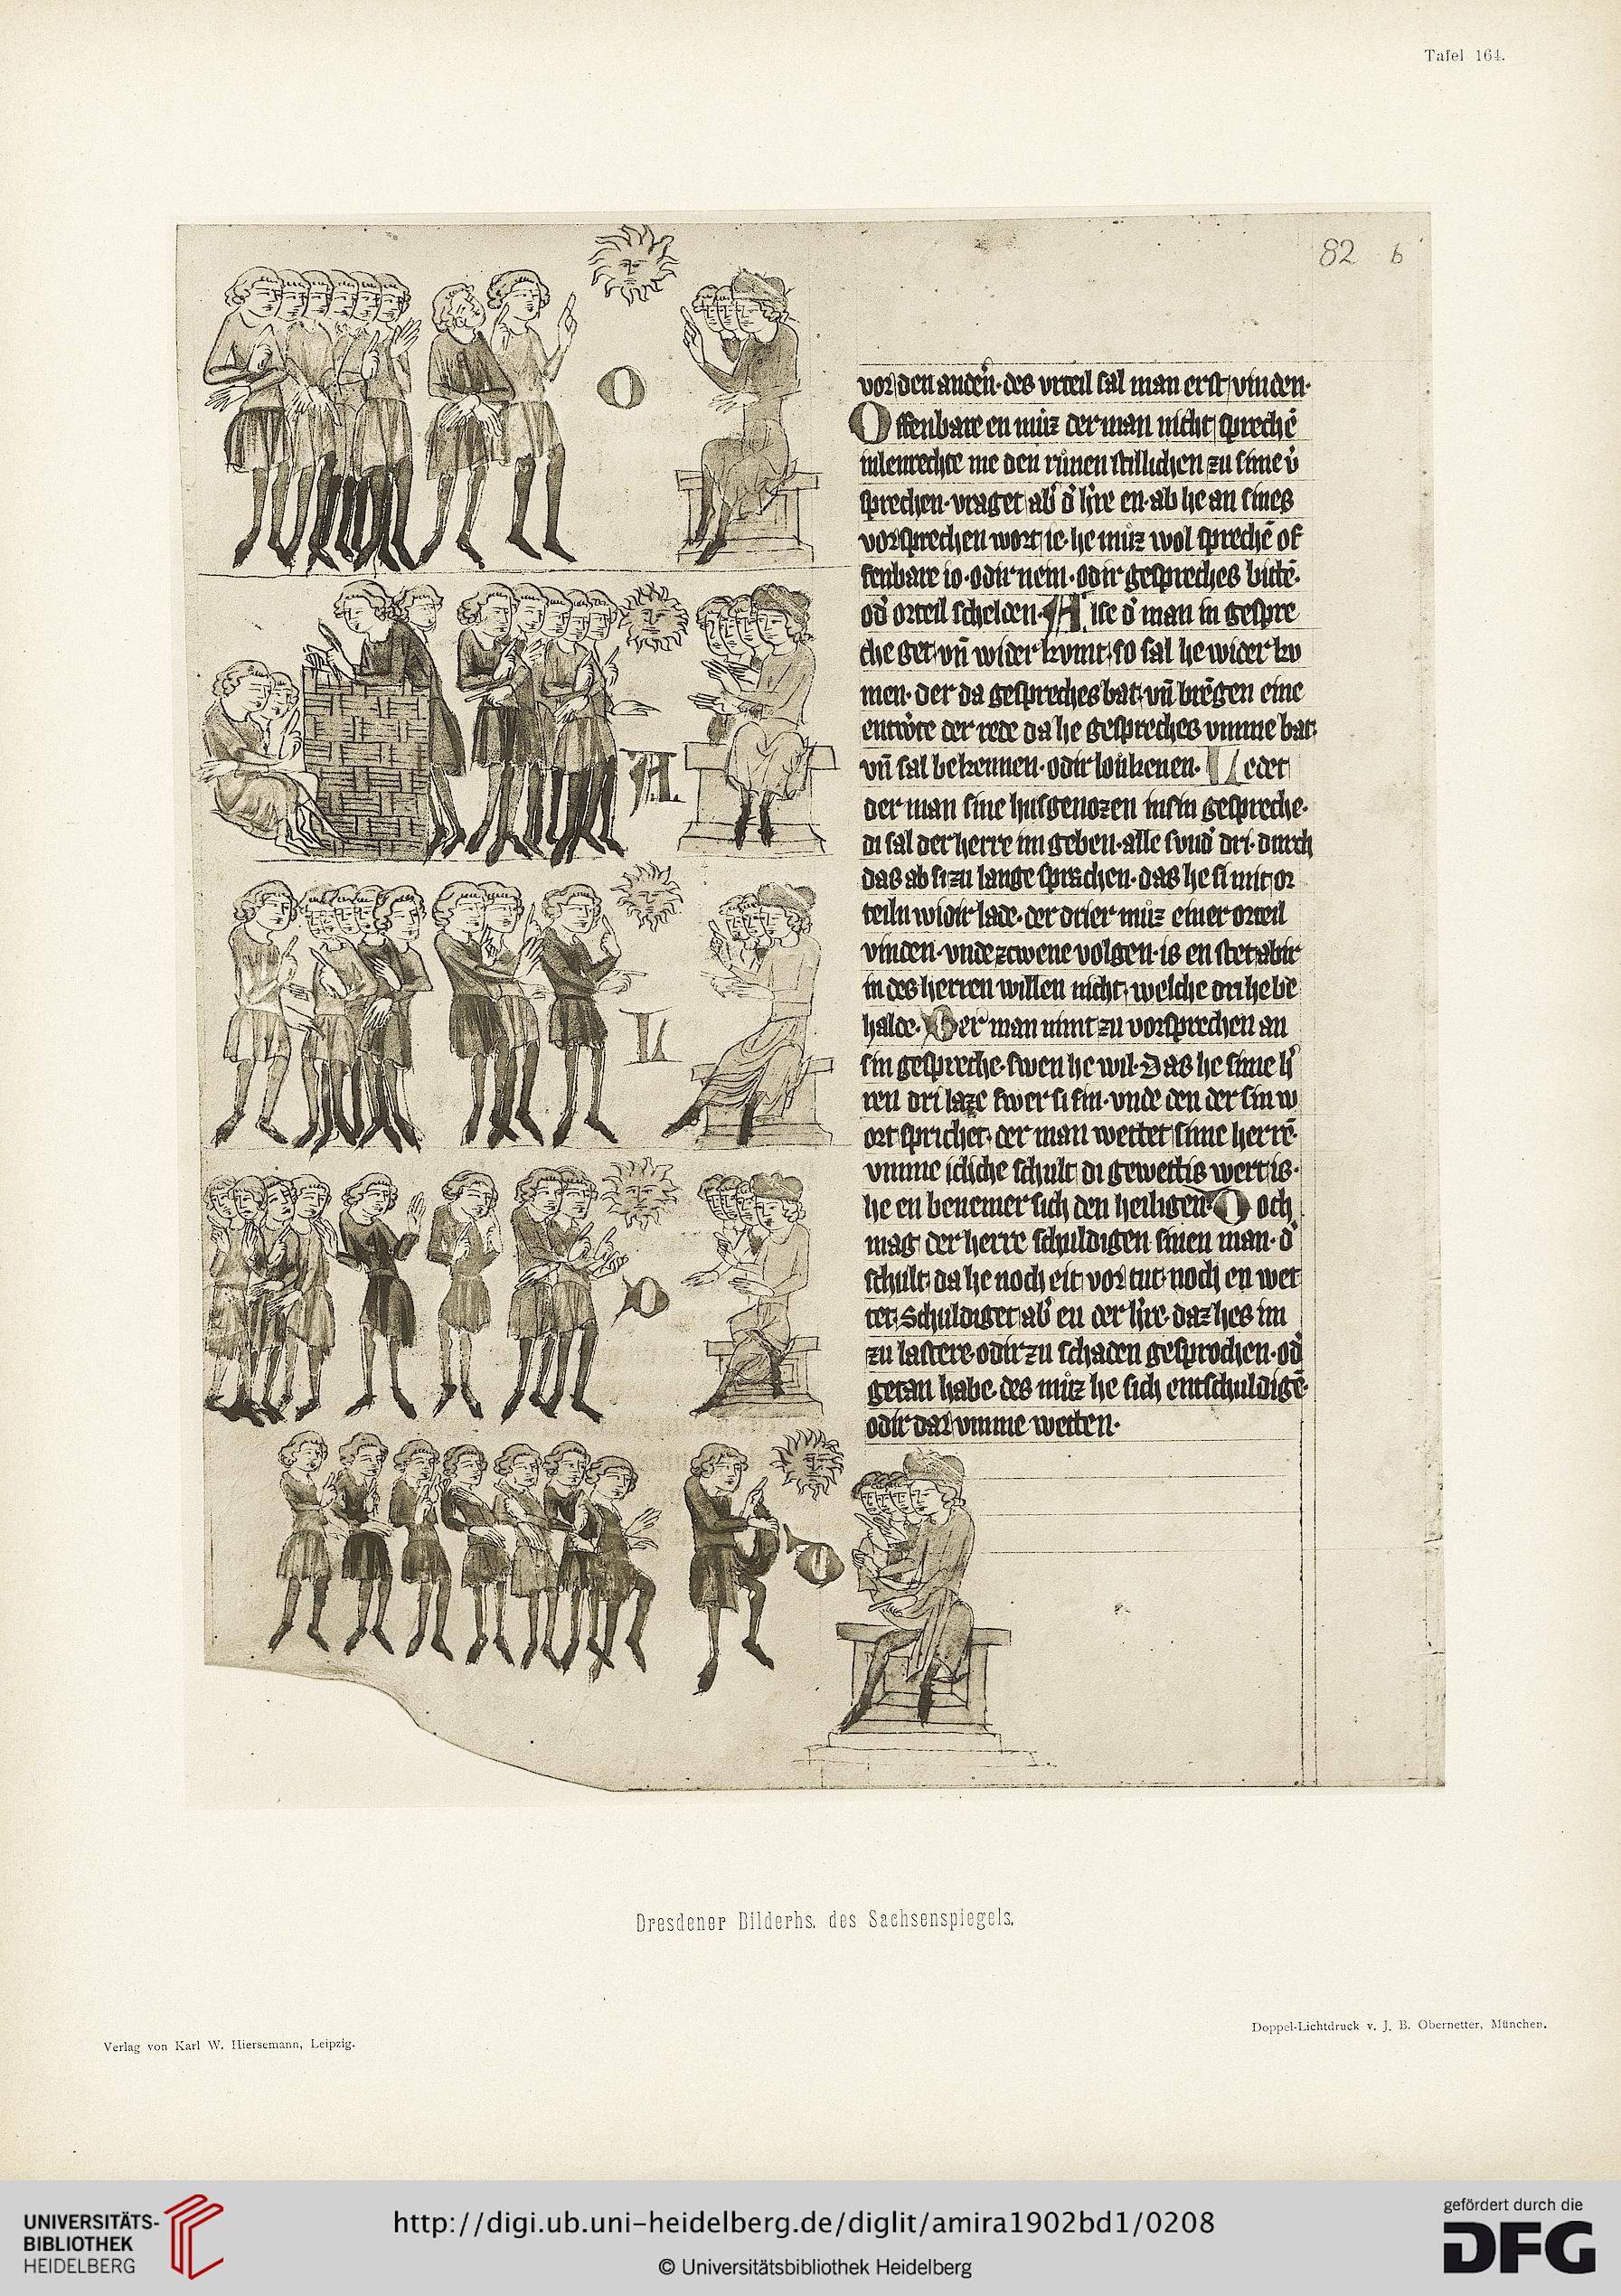 Tafel 164.
82 b
vor den andeñ· des vrteil sal man erst vinden·
Offenbare en můz der man nicht sprechē
inlenrechte me den růnen stillichen zu sime v̄
sprechen· vraget ab' d' h're en· ab he an sines
vorsprechen wort ie· he můz wol sprechē of
fenbare io· odir nein· odir gespreches bittē·
od' orteil schelden· Alse d' man in gespre
che get· vñ wider kvmt· so sal he wider kv
men· der da gespreches bat· vñ brēgen eine
entw'te der rede da he gespreches vmme bat·
vñ sal bekennen· odir loukenen· Ledet
der man sine husgenozen in sin gespreche·
di sal der herre im geben· alle svnd' dri· durch
das ab si zu lange sprachen· das he si mit or
teiln widir lade· der drier můz einer orteil
vinden· vnde zcwene volgen· is en stet abir
in des herren willen nicht· welche dri he be
halde· Der man nimt zu vorsprechen an
sin gespreche· swen he wil· Das he sime h'
ren dri laze swer si sin· vnde den der sin w
ort sprichet· der man wettet sime herrē·
vmme icliche schult di gewettis wert is·
he en beneme sich den heiligen· Doch
mag der herre schuldigen sinen man· d'
schult· da he noch eit vor tut· noch en wet
tet· Schuldiget ab' en der h're· daz hes im
zu lastere odir zu schaden gesprochen· od'
getan habe· des můz he sich entschuldigē·
odir dar vmme wetten·
O
A
L
D
D
Dresdener Bilderhs. des Sachsenspiegels.
Verlag von Karl W. Hiersemann, Leipzig.
Doppel-Lichtdruck v. J. B. Obernetter, München.
UNIVERSITÄTS-
BIBLIOTHEK
HEIDELBERG
http://digi.ub.uni-heidelberg.de/diglit/amira1902bd1/0208
© Universitätsbibliothek Heidelberg
gefördert durch die
DFG